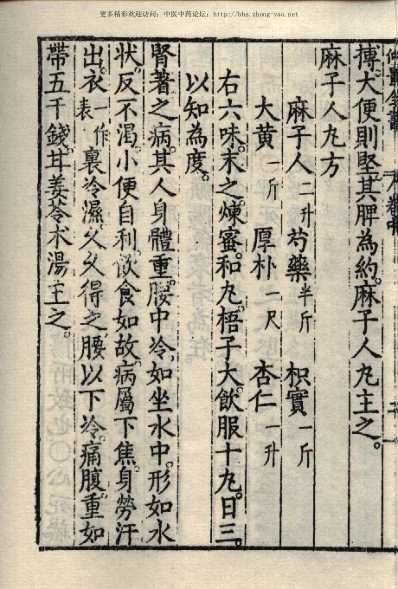 更多精彩欢迎访问：中医中药论坛：http://bbs.zhong-yao.net
搏大便則堅其脾為約麻子人丸主之
麻子人丸方
麻子人二升 芍藥半斤 枳實一斤
大黄一斤 厚朴一尺 杏仁一升
右六味末之煉蜜和丸梧子大飲服十丸日三
以知為度
腎著之病其人身體重腰中冷如坐水中形如水
狀反不渴小便自利飲食如故病屬下焦身勞汗
出衣一作表裏冷濕久久得之腰以下冷痛腹重如
帶五千錢甘姜苓术湯主之